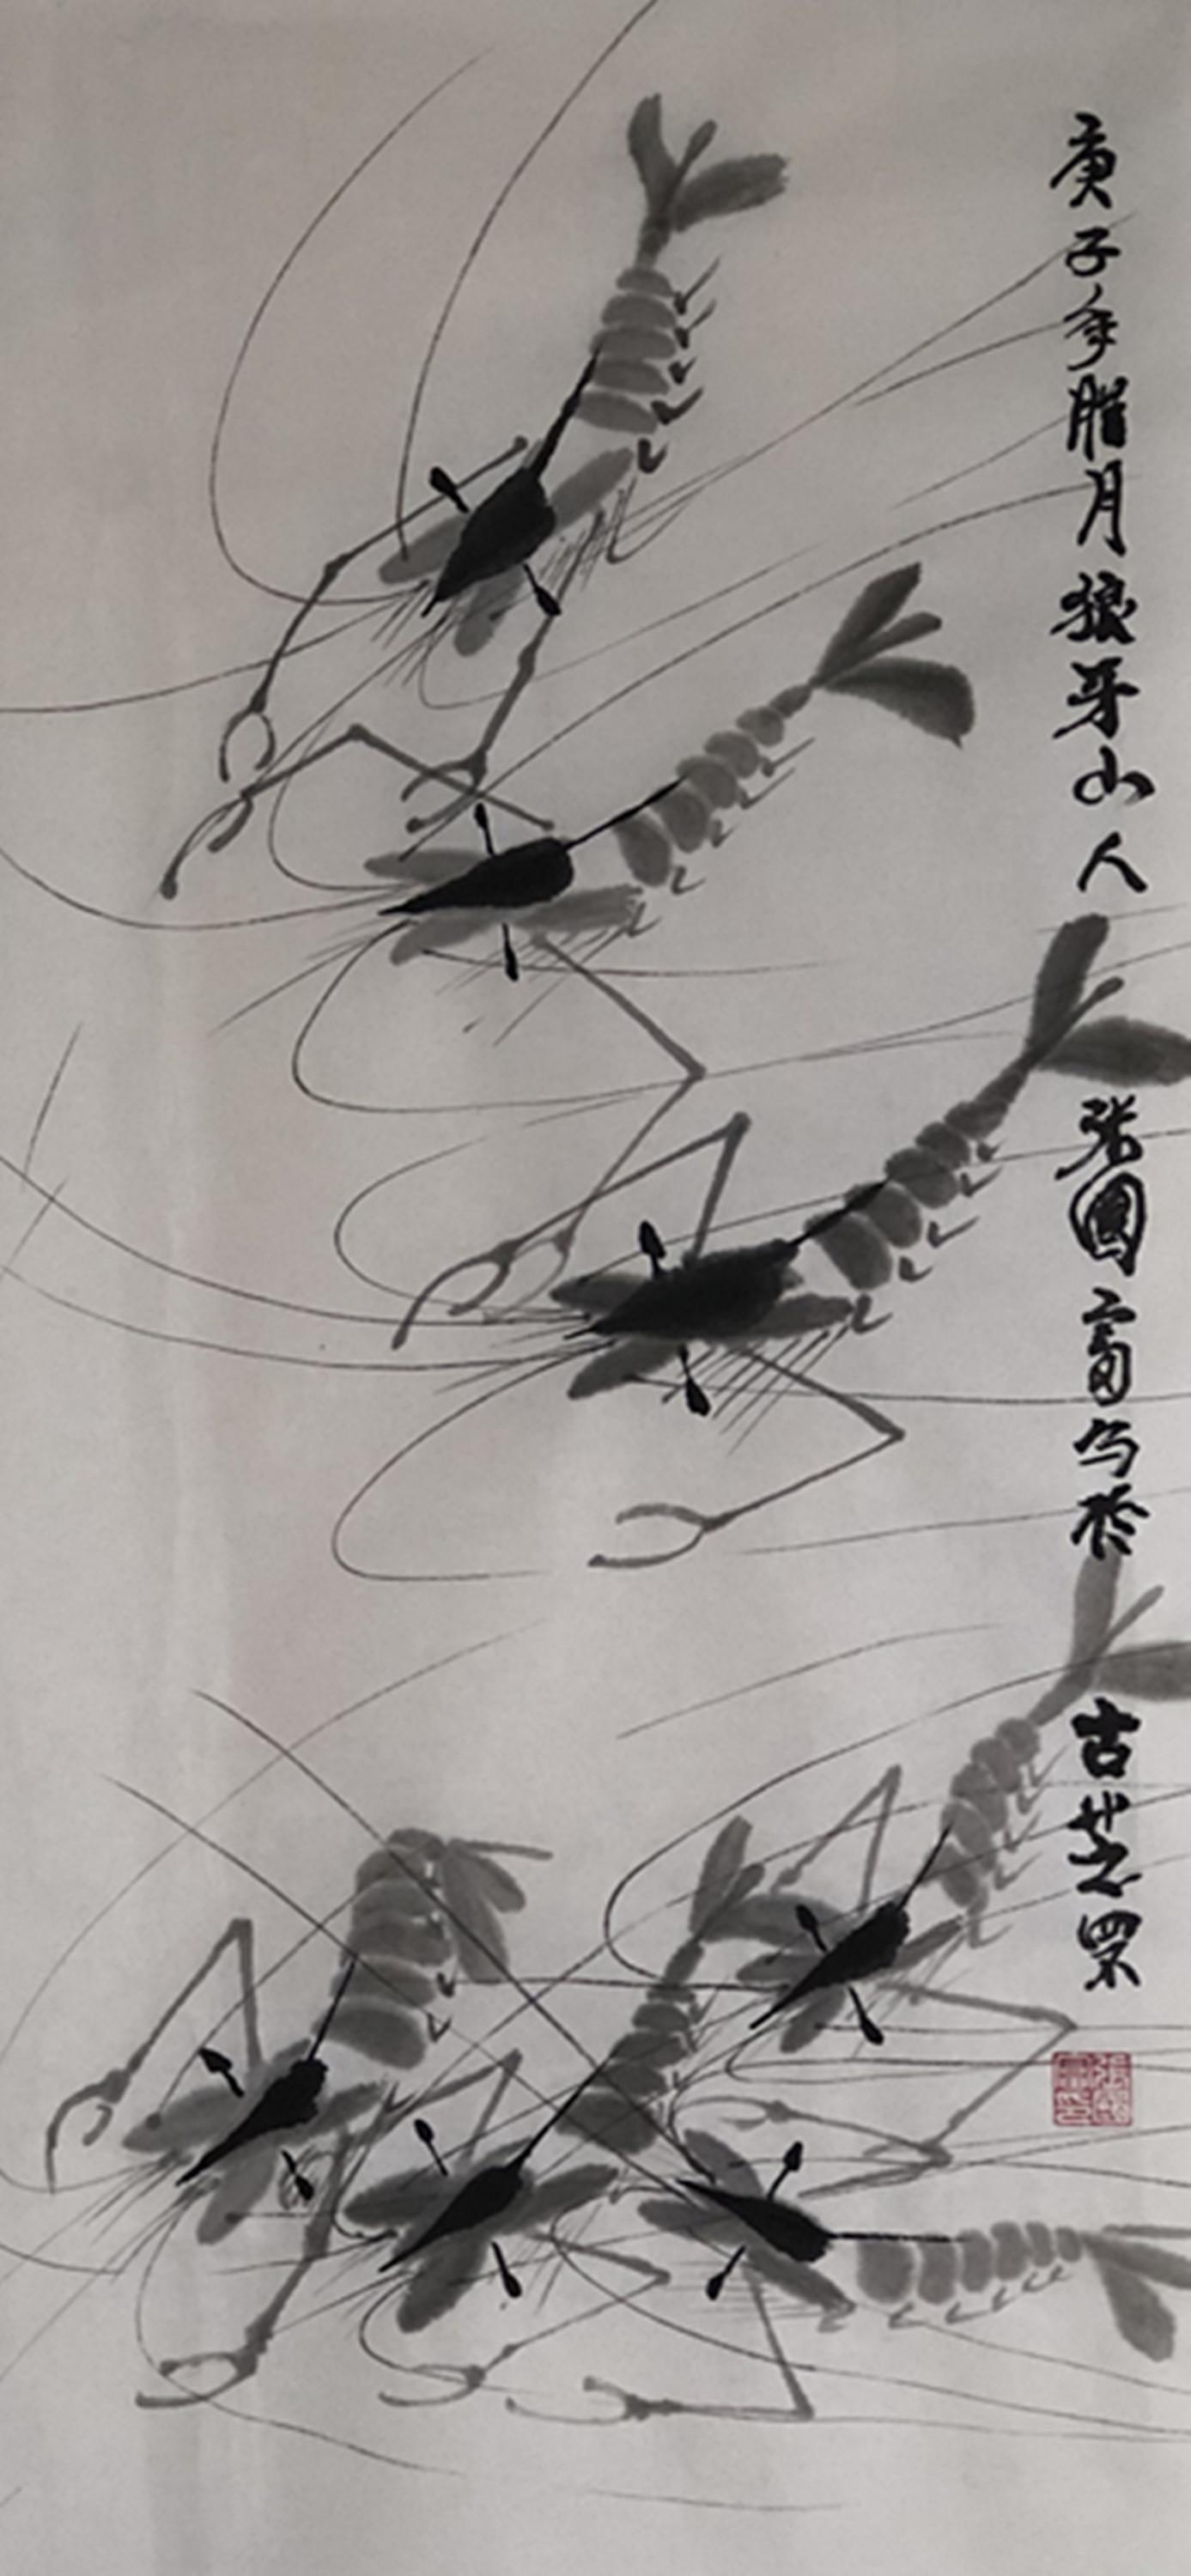 庚子年腊月狼牙山人
张国富写於
古芝罘